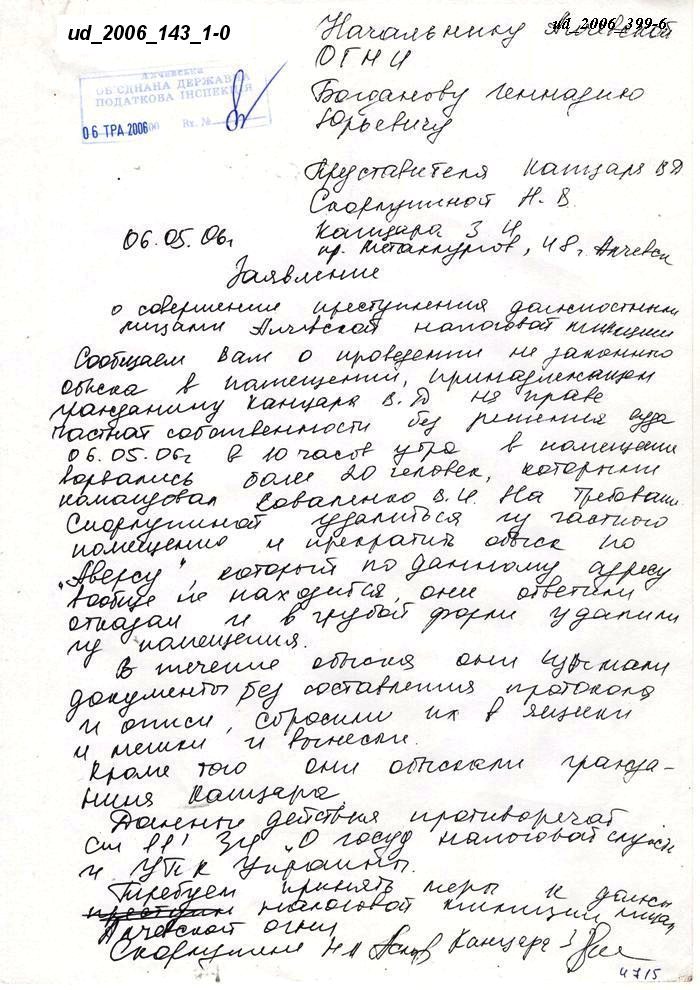 ud_2006_143_1-0
ud_2006_399-6
Начальнику Алчевской
ОГНИ
Богданову Геннадию
Юрьевичу
Алчевська
ОБ'ЄДНАНА ДЕРЖАВНА
ПОДАТКОВА ІНСПЕКЦІЯ
06 ТРА 2006 Вх. №
Представителя Канцара В Д
Скорпулиной Н. В.
Канцара З И
06.05.06г пр. Металлургов, 48 г Алчевск
Заявление
о совершении преступления должностными
лицами Алчевской налоговой милиции
Сообщаем Вам о проведении не законного
обыска в помещении, принадлежащем
гражданину Канцара В. Д на праве
частной собственности без решения суда
06.05.06г в 10 часов утра в помещение
ворвались более 20 человек, которыми
командовал Коваленко В. И. На требования
удалиться из частного
помещения и прекратить обыск по
"Аверсу", который по данному адресу
вообще не находится, они ответили
отказом и в грубой форме удалили
из помещения.
В течение обыска они изымали
документы без составления протокола
и описи, сбросили их в ящики
и мешки и вынесли.
Кроме того они обыскали гражда-
нина Канцара
Данные действия противоречат
ст 11' ЗУ "О госуд налоговой службе
и УПК Украины.
Требуем принять меры к должн
налоговой милиции лицам
Алчевской ОГНИ
Канцара З
4715